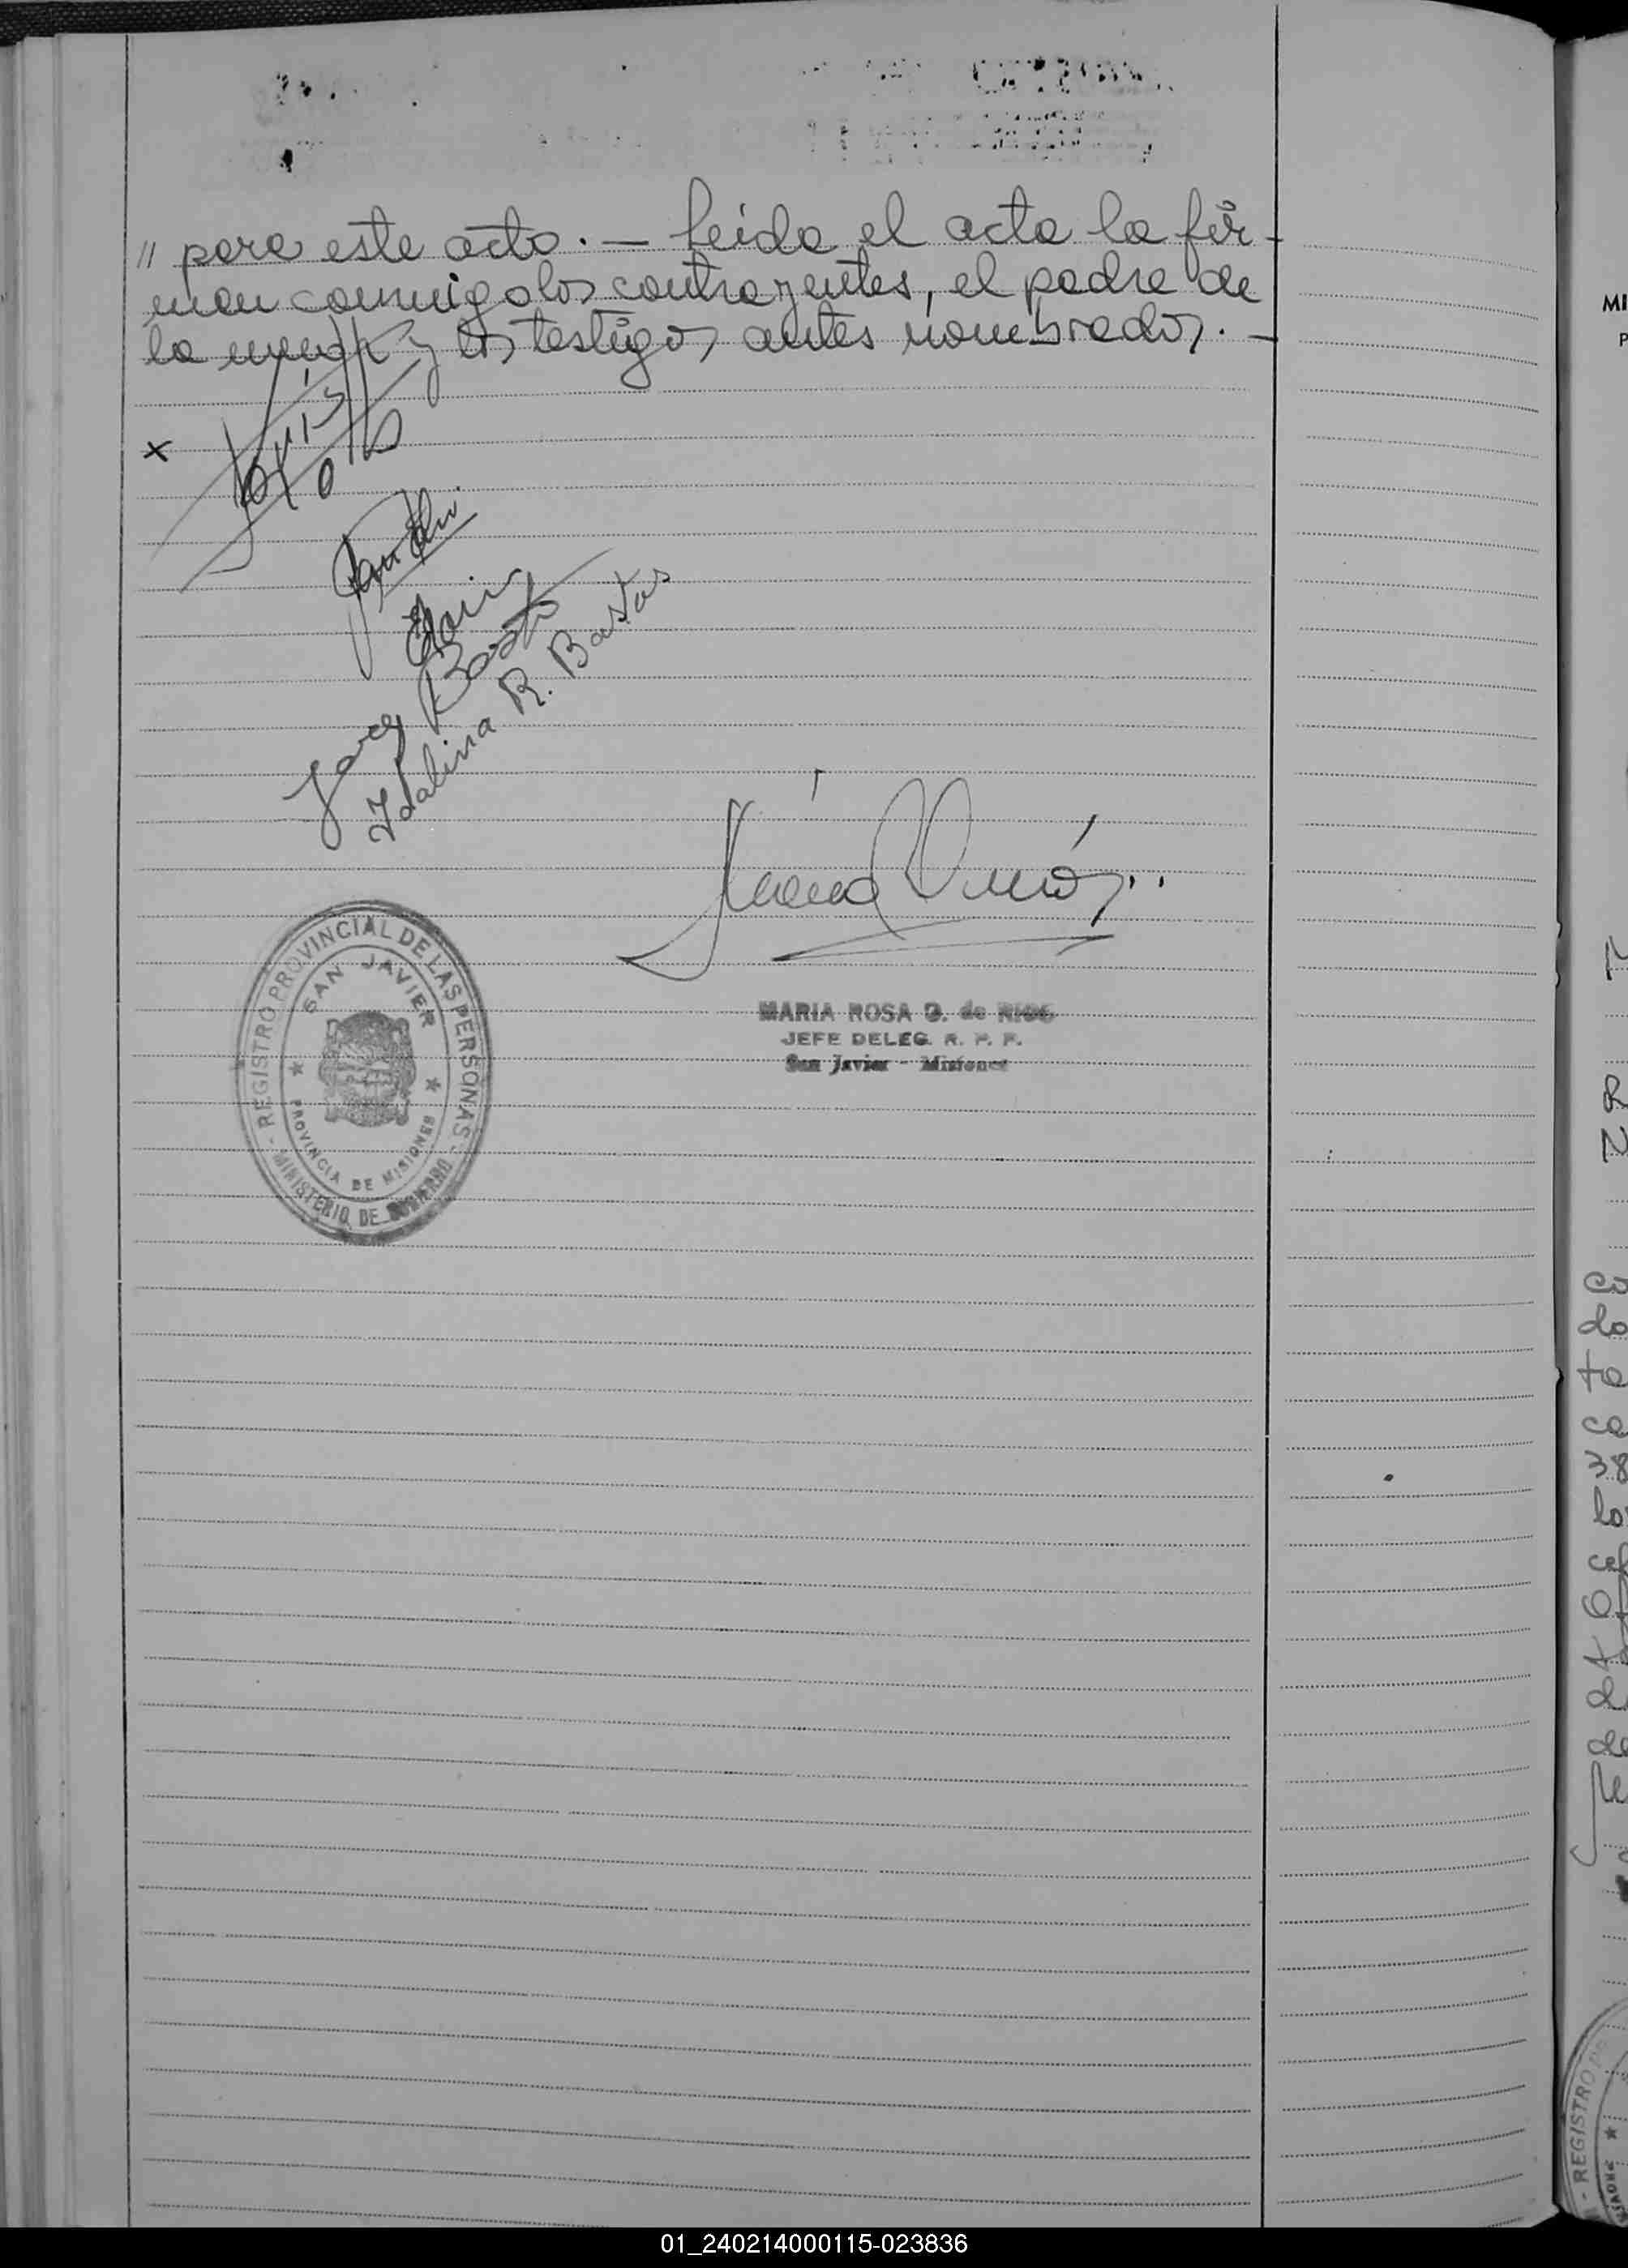 // para este acto. — Leída el acta la fir-
man conmigo los contrayentes, el padre de
la menor y los testigos antes nombrados. —
x
Bastos
Idalina R. Bastos
REGISTRO PROVINCIAL DE LAS PERSONAS
SAN JAVIER
PROVINCIA DE MISIONES
MINISTERIO DE GOBIERNO
MARIA ROSA D. de RIOS
JEFE DELEG. R. P. P.
San Javier - Misiones
MI
P
R
N
co
do
ta
ca
38
lo
REGISTRO
01_240214000115-023836